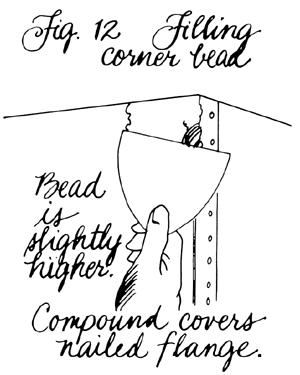 Fig. 12 Filling
corner bead
Bead
is
slightly
higher.
Compound covers
nailed flange.